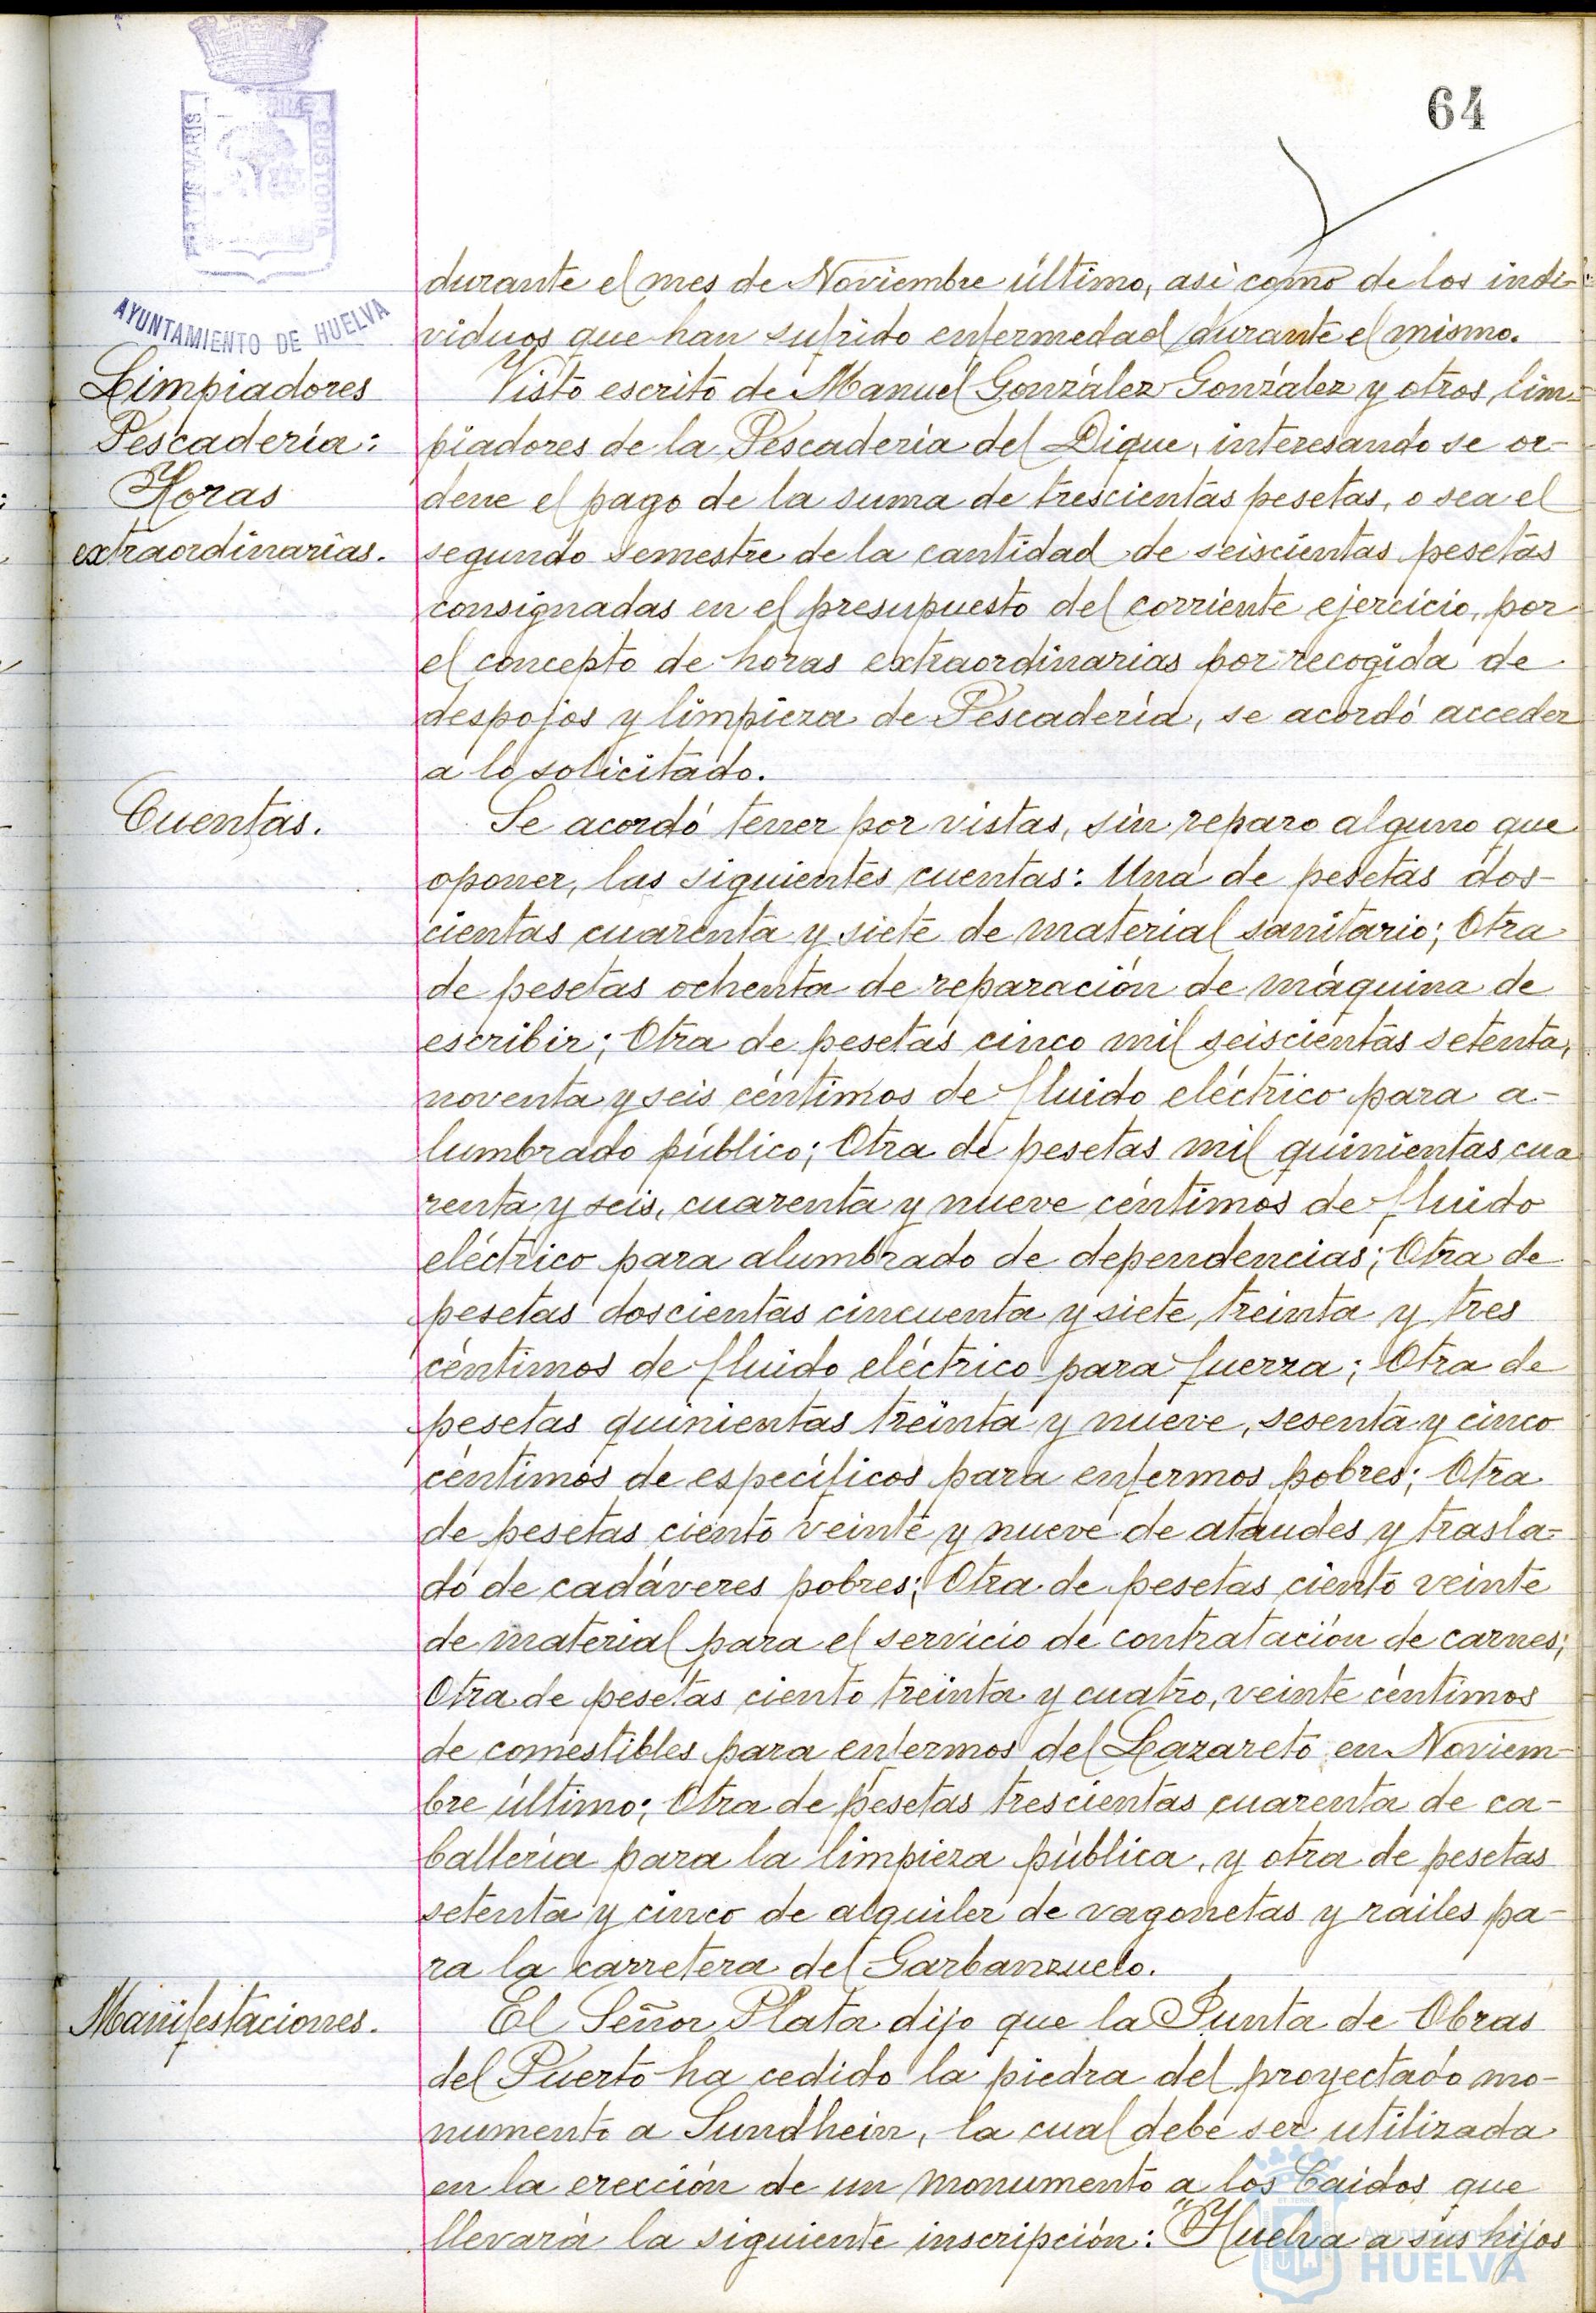 64
PORTUS MARIS
CUSTODIA
AYUNTAMIENTO DE HUELVA
durante el mes de Noviembre último, así como de los indi-
viduos que han sufrido enfermedad durante el mismo.
Limpiadores
Pescadería:
Horas
extraordinarias.
Visto escrito de Manuel González González y otros, lim-
piadores de la Pescadería del Dique, interesando se or-
dene el pago de la suma de trescientas pesetas, o sea el
segundo semestre de la cantidad de seiscientas pesetas
consignadas en el presupuesto del corriente ejercicio, por
el concepto de horas extraordinarias por recogida de
despojos y limpieza de Pescadería, se acordó acceder
a lo solicitado.
Cuentas.
Se acordó tener por vistas, sin reparo alguno que
oponer, las siguientes cuentas: Una de pesetas dos-
cientas cuarenta y siete de material sanitario; Otra
de pesetas ochenta de reparación de máquina de
escribir; Otra de pesetas cinco mil seiscientas setenta,
noventa y seis céntimos de fluido eléctrico para a-
lumbrado público; Otra de pesetas mil quinientas cua
renta y seis, cuarenta y nueve céntimos de fluido
eléctrico para alumbrado de dependencias; Otra de
pesetas doscientas cincuenta y siete, treinta y tres
céntimos de fluido eléctrico para fuerza; Otra de
pesetas quinientas treinta y nueve, sesenta y cinco
céntimos de específicos para enfermos pobres; Otra
de pesetas ciento veinte y nueve de ataudes y trasla-
do de cadáveres pobres; Otra de pesetas ciento veinte
de material para el servicio de contratación de carnes;
Otra de pesetas ciento treinta y cuatro, veinte céntimos
de comestibles para enfermos del Lazareto en Noviem-
bre último; Otra de pesetas trescientas cuarenta de ca-
ballería para la limpieza pública, y otra de pesetas
setenta y cinco de alquiler de vagonetas y railes pa-
ra la carretera del Garbanzuelo.
Manifestaciones.
El Señor Plata dijo que la Junta de Obras
del Puerto ha cedido la piedra del proyectado mo-
numento a Sundhein, la cual debe ser utilizada
en la erección de un monumento a los Caidos que
llevará la siguiente inscripción: "Huelva a sus hijos
Ayuntamiento de
HUELVA